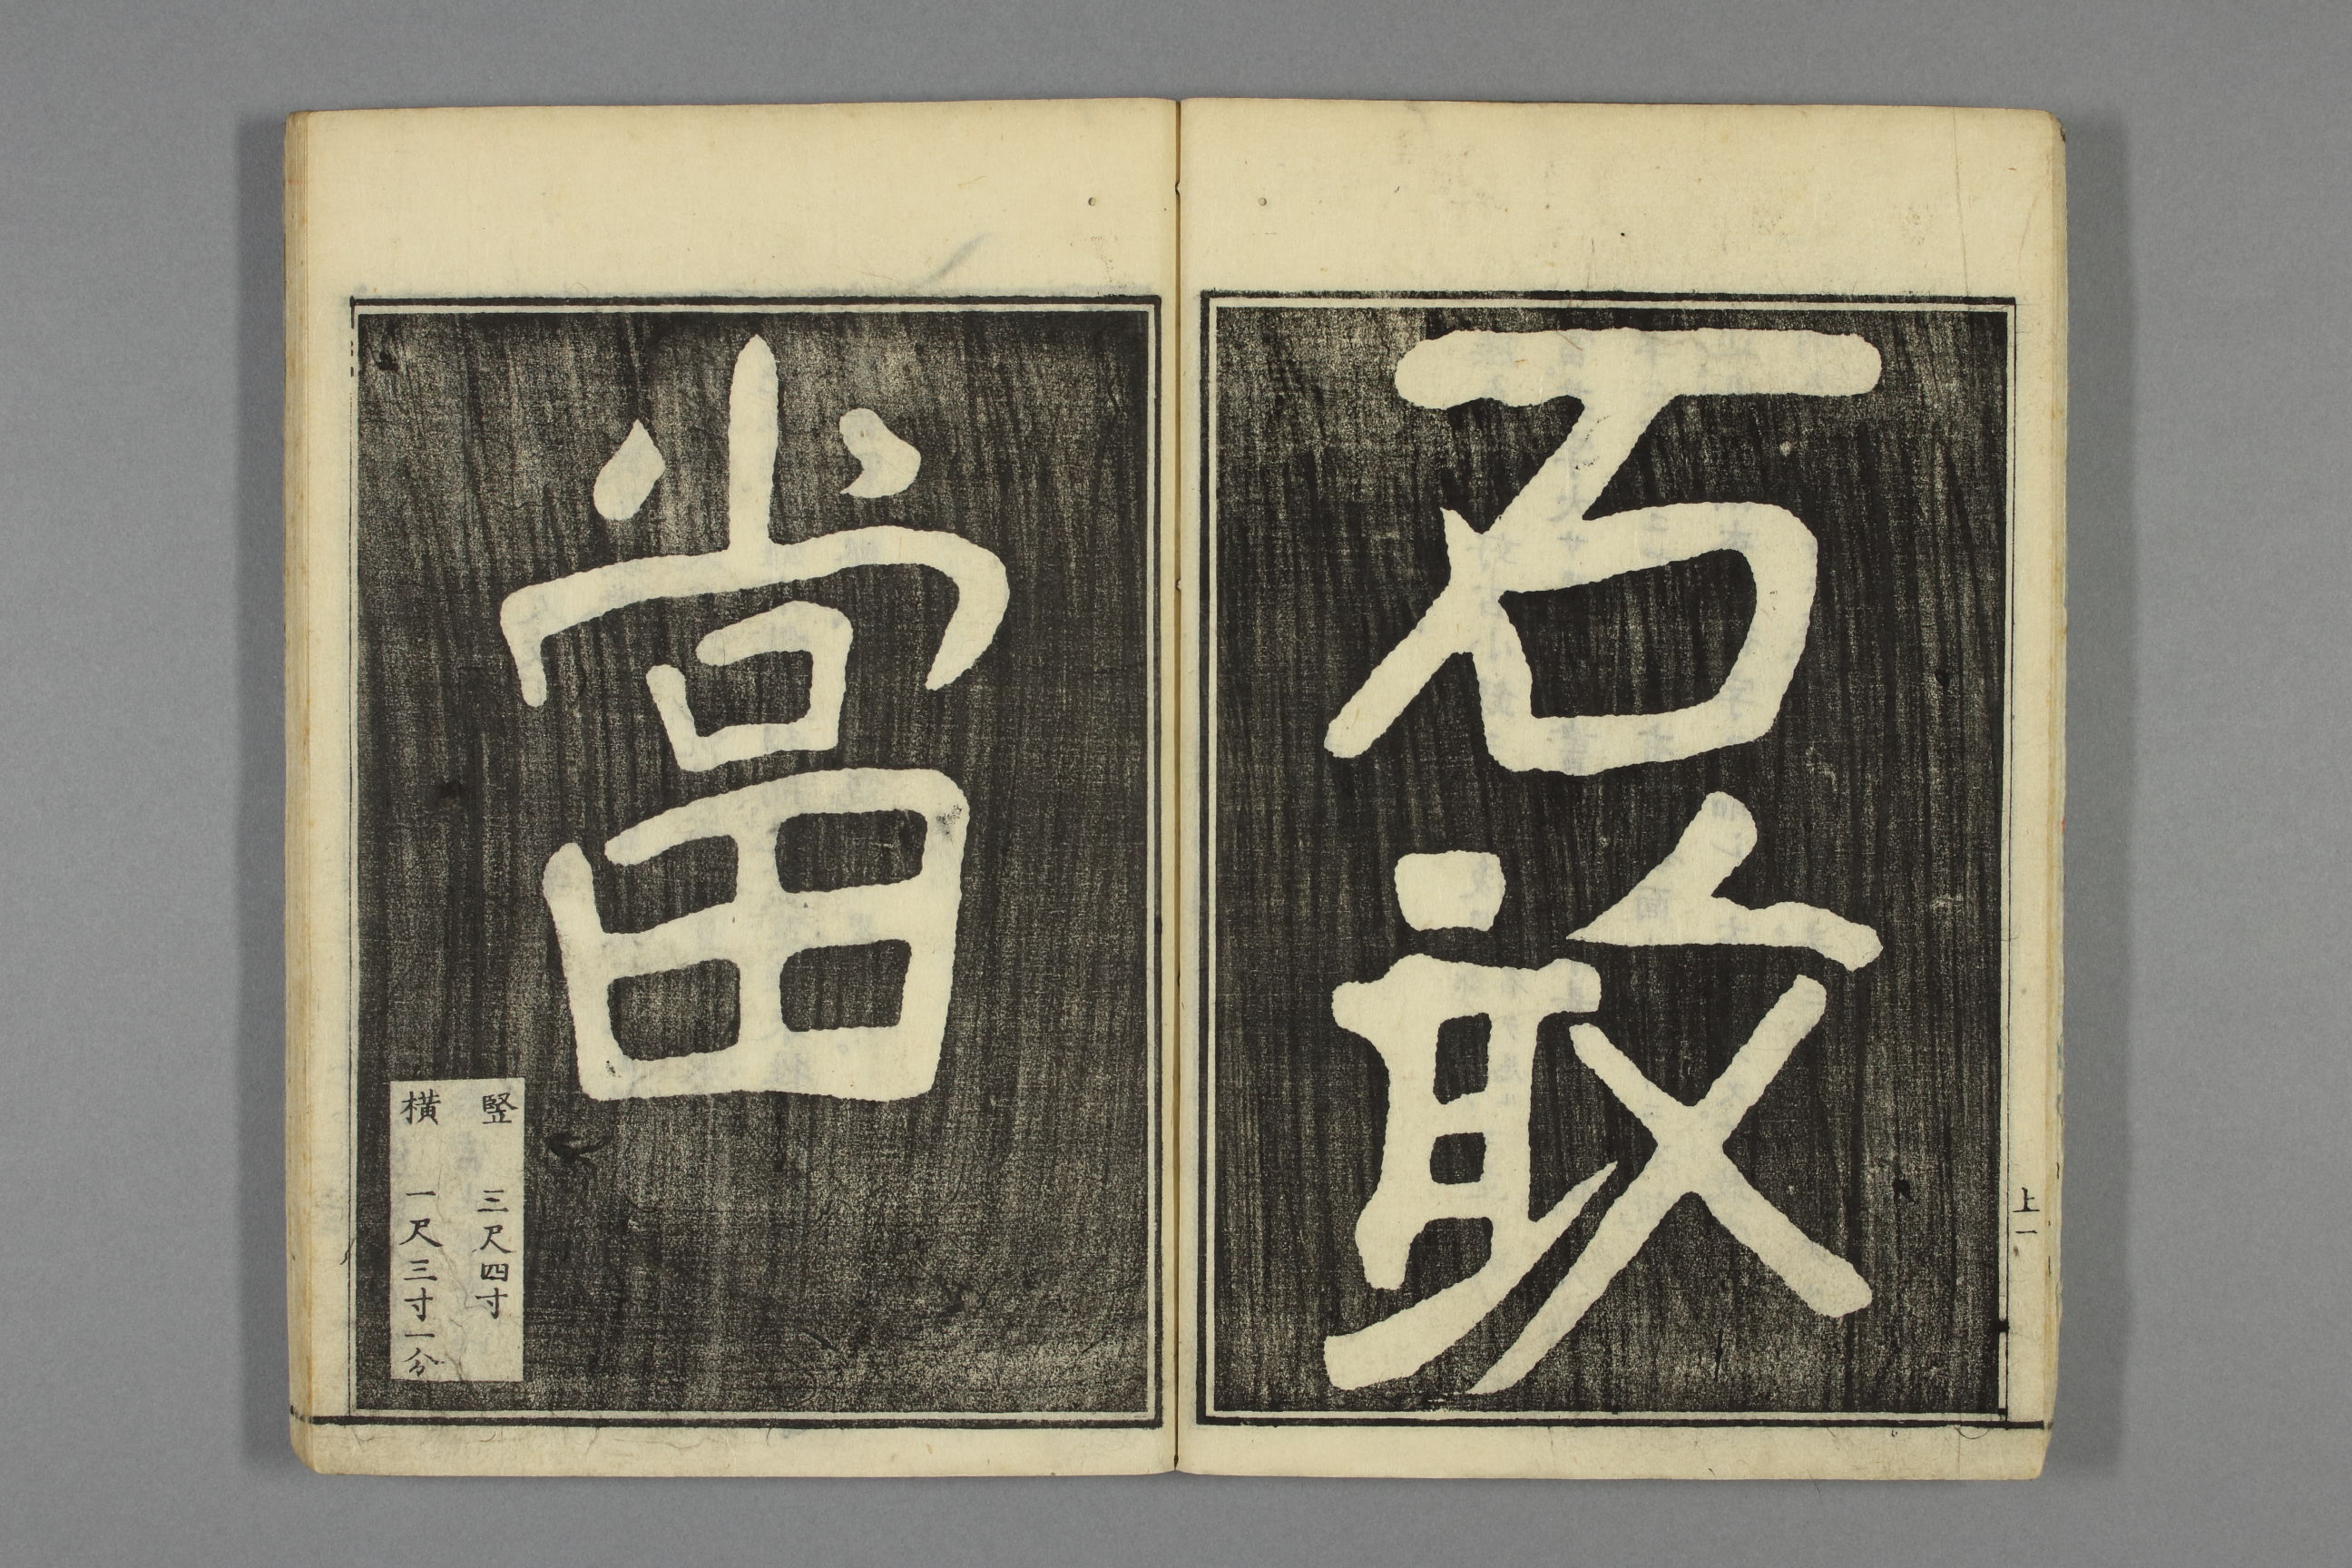 石敢
上一
當
竪 三尺四寸
横 一尺三寸一分